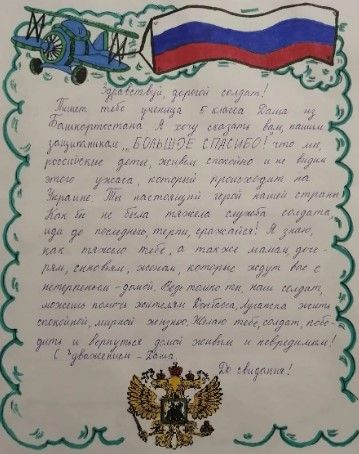 Здравствуй, дорогой солдат!
Пишет тебе ученица 5 класса Даша из
Башкортостана. Я хочу сказать вам, нашим
защитникам „БОЛЬШОЕ СПАСИБО! что мы,
российские дети, живём спокойно и не видим
этого ужаса, который происходит на
Украине. Ты настоящий герой нашей страны.
Как бы не была тяжела служба солдата,
иди до последнего, терпи, сражайся! Я знаю,
как тяжело тебе, а также мамам, доче-
рям, сыновьям, женам, которые ждут вас с
нетерпеньем – домой. Ведь только ты, наш солдат,
можешь помочь жителям Донбасса, Луганска жить
спокойной, мирной жизнью. Желаю тебе, солдат, побе-
дить и вернуться домой живым и невредимым!
С уважением – Даша
До свидания!